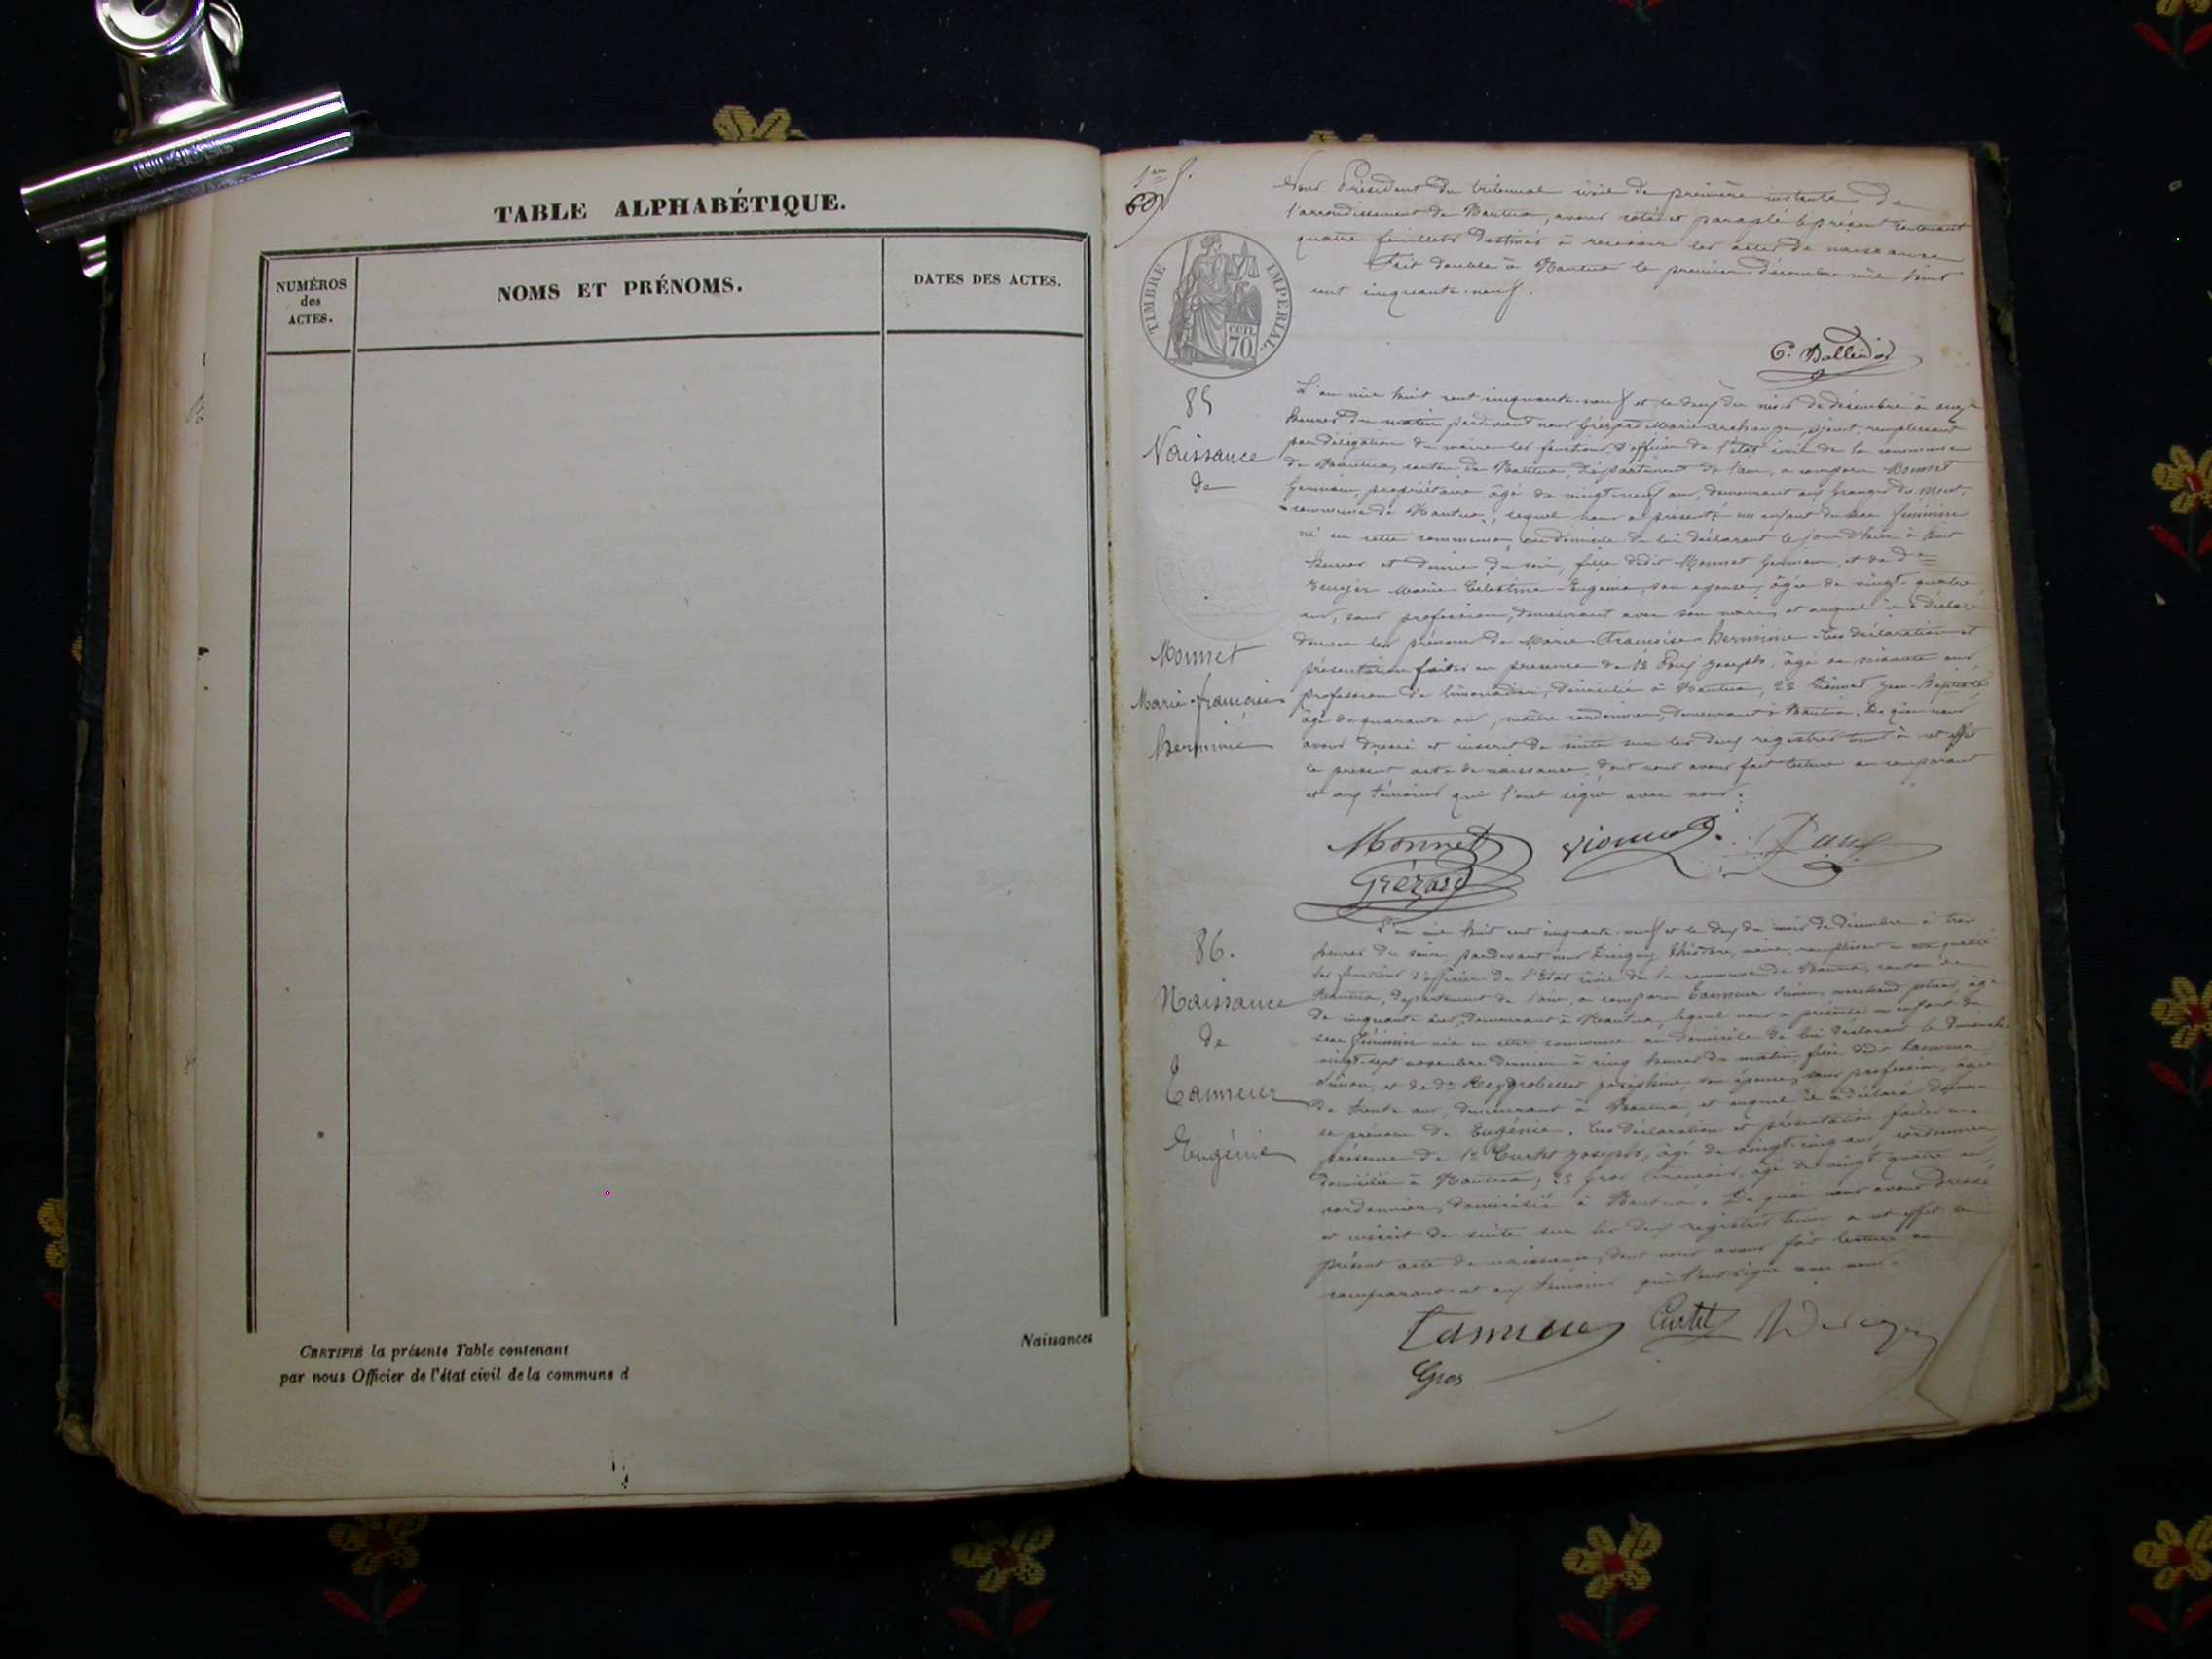 TABLE ALPHABÉTIQUE.
NUMÉROS
des
ACTES.
NOMS ET PRÉNOMS.
DATES DES ACTES.
CERTIFIÉ la présente Table contenant
Naissances
par nous Officier de l'état civil de la commune d
1er f.
Nous Président du tribunal civil de première instance de
l'arrondissement de Nantua, avons coté et paraphé le présent contenant
quatre feuillets destinés à recevoir les actes de naissance
Fait double à Nantua le premier décembre mil huit
cent cinquante-neuf.
TIMBRE IMPÉRIAL.
70
85
Naissance
de
Monnet
Marie-françoise
herminie
L'an mil huit cent cinquante-neuf et le deux du mois de décembre à onze
heures du matin pardevant nous Grézard Marie archange, adjoint, remplissant
par délégation du maire les fonctions d'officier de l'état civil de la commune
de Nantua, canton de Nantua, département de l'ain, a comparu Monnet
Germain, propriétaire âgé de vingt-neuf ans, demeurant aux Granges du mont,
commune de Nantua, lequel nous a présenté un enfant du sexe féminin
né en cette commune, au domicile de lui déclarant le jour d'hier à huit
heures et demie du soir, fille dudit Monnet Germain, et de de
Marie Célestine Eugénie, son épouse, âgée de vingt-quatre
ans, sans profession, demeurant avec son mari, et auquel il a déclaré
donner les prénoms de Marie-Françoise-herminie. Les déclaration et
présentation faites en présence de 1º joseph, âgé de soixante ans
profession de limonadier, domicilié à Nantua, 2º jean-Baptiste
âgé de quarante ans, maître cordonnier, demeurant à Nantua. De quoi nous
avons dressé et inscrit de suite sur les deux registres tenus à cet effet
le présent acte de naissance, dont nous avons fait lecture au comparant
et aux témoins qui l'ont signé avec nous.
Monnet
Grézard
86.
Naissance
de
Tanneur
Eugénie
L'an mil huit cent cinquante-neuf et le deux du mois de décembre à trois
heures du soir, pardevant nous maire, remplissant en qualité
les fonctions d'officier de l'Etat civil de la commune de Nantua, canton de
Nantua, département de l'ain, a comparu Tanneur Simon, marchand âgé
de cinquante ans, demeurant à Nantua, lequel nous a présenté un enfant du
sexe féminin née en cette commune au domicile de lui déclarant le dimanche
vingt-sept novembre dernier à cinq heures du matin, fille dudit Tanneur
Simon, et de de joséphine, son épouse, sans profession, âgée
de trente ans, demeurant à Nantua, et auquel il a déclaré donner
le prénom de Eugénie. Les déclaration et présentation faites en
présence de 1º Curtet joseph, âgé de vingt-cinq ans, cordonnier
domicilié à Nantua; 2º Gros François, âgé de vingt-quatre ans,
cordonnier, domicilié à Nantua. De quoi nous avons dressé
et inscrit de suite sur les deux registres tenus à cet effet le
présent acte de naissance, dont nous avons fait lecture au
comparant et aux témoins qui l'ont signé avec nous.
Tanneur Curtet
Gros